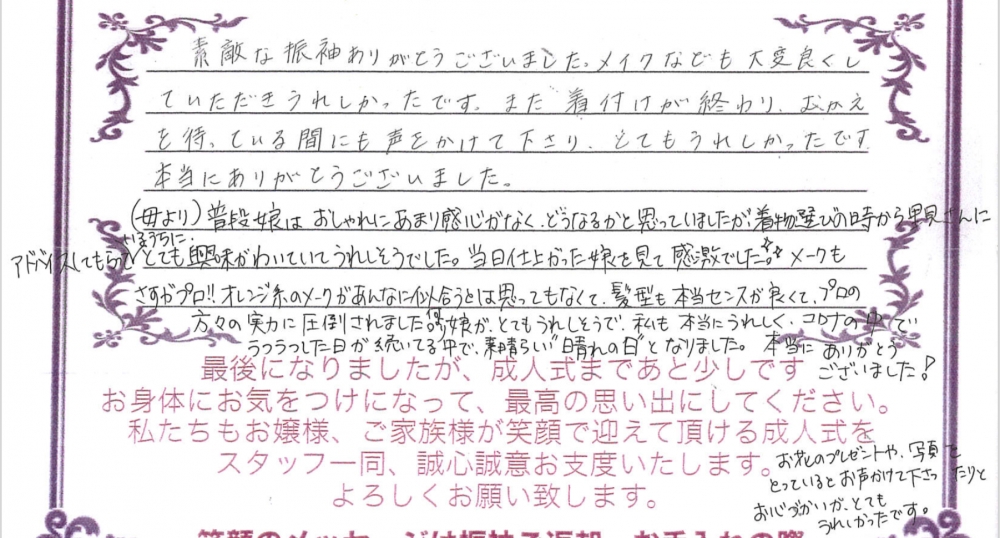 素敵な振袖ありがとうございました。メイクなども大変良くし
ていただきうれしかったです。また着付けが終わり、むかえ
を待っている間にも声をかけて下さり、とてもうれしかったです
本当にありがとうございました。
(母より)普段娘は、おしゃれにあまり感心がなく、どうなるかと思っていましたが、着物選びの時から里見さんに
アドバイスしてもらうやるうちに、とても興味がわいていてうれしそうでした。当日仕上がった娘を見て感激でした。メークも
さすがプロ!!オレンジ系のメークがあんなに似合うとは思ってもなくて、髪型も本当センスが良くて、プロの
方々の実力に圧倒されました。娘が、とてもうれしそうで、私も本当にうれしく、コロナの中で
うつうつした日が続いてる中で、素晴らしい"晴れの日"となりました。本当にありがとう
ございました!
最後になりましたが、成人式まであと少しです
お身体にお気をつけになって、最高の思い出にしてください。
私たちもお嬢様、ご家族様が笑顔で迎えて頂ける成人式を
スタッフ一同、誠心誠意お支度いたします。
よろしくお願い致します。
お花のプレゼントや、写真を
とっているとお声かけて下さったりと
お心づかいが、とても
うれしかったです。